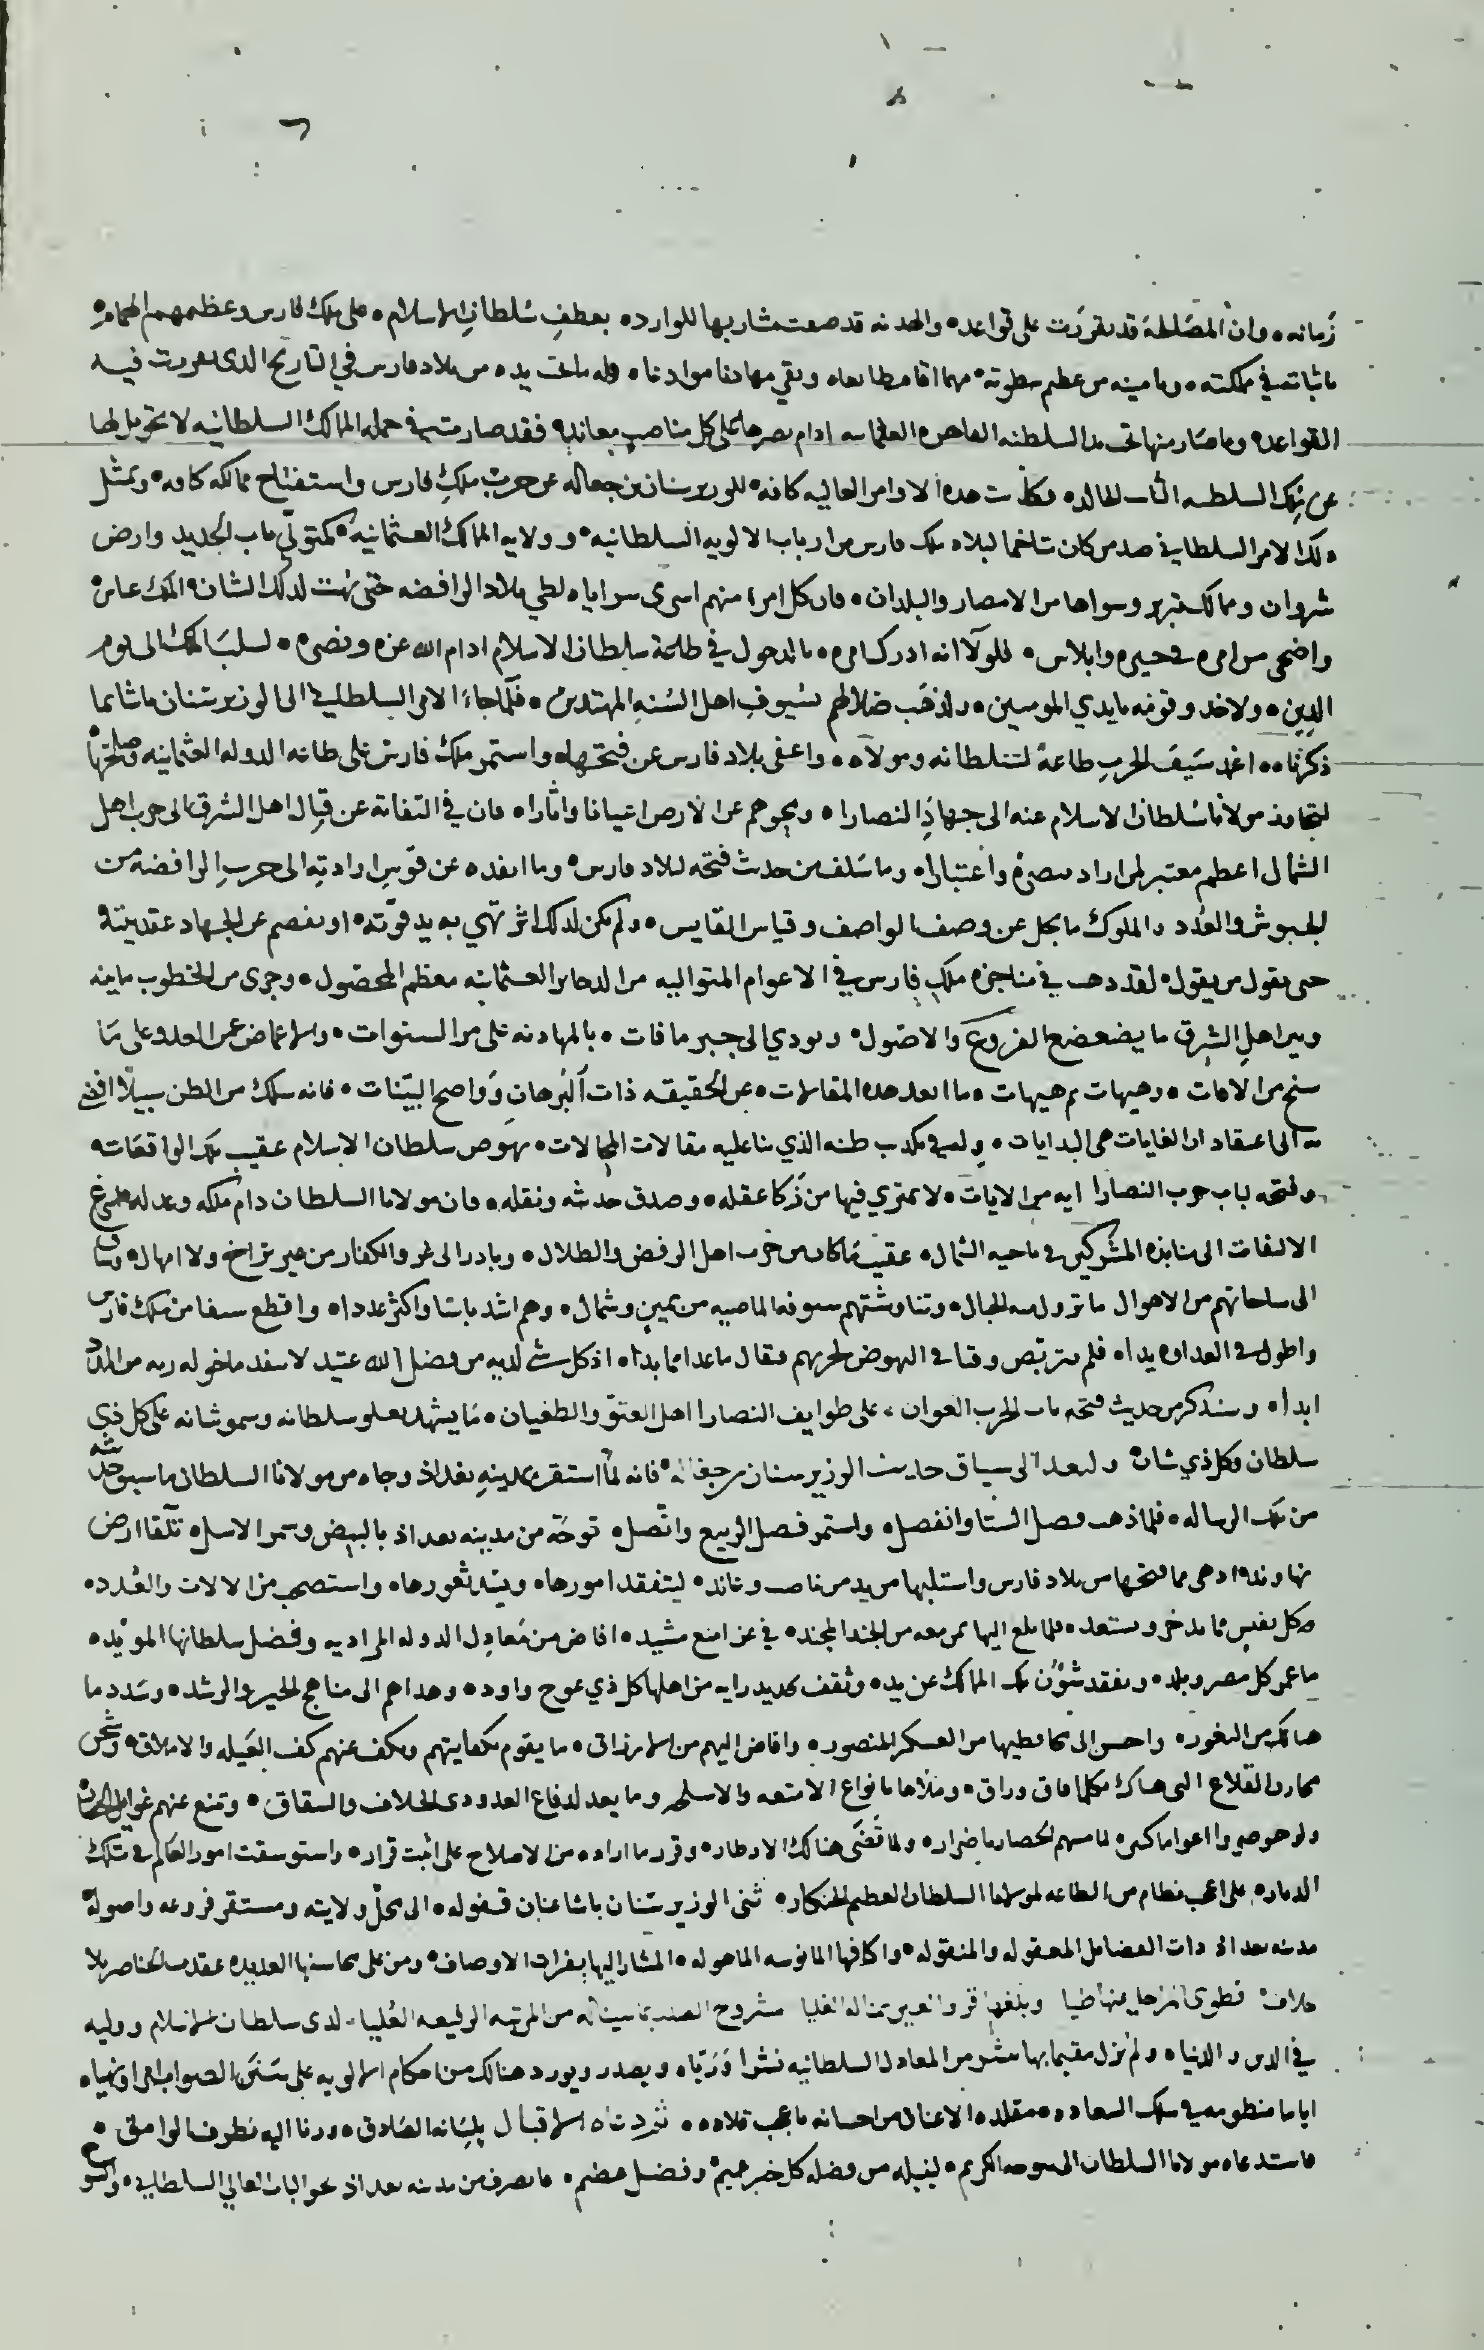 زمانه، وان المصلحة قد تقررت على قواعد، والهدنه قد صعت مشاربها للوارد، بعطف سلطان الاسلام، على ملك فارس وعظمهم الهمام،
باثباته في مملكته، وتامينه من عظيم سطوته، مهما اقام مطابعاه وبقي مهادنا موادعا، وله ما تحت يده من بلاد فارس في التاريخ الذي تقررت فيه
القواعد، وما صار منها تحت يد السلطنه القاهره العثمانيه ادام نصرها على كل مناصب معانده فقد صارت في جمله الممالك السلطانيه لا تحويل لها
عن تلك السلطنه الخالده فكانت هذه الاوامر العاليه كافه للوزير سنان بن جعاله عن حرب ملك فارس واستفتاح ممالكه كافه، وبمثل
ذلك الامر السلطاني صد من كان متاخما لبلاد ملك فارس من ارباب الالويه السلطانيه، وولايه الممالك العثمانيه، كمتولي باب الحديد وارض
شروان وممالك تبريز وسواها من الامصار والبلدان، فان كل امرء منهم اسرى سراياه لطي بلاد الرافضه حتى بهت لذلك الشان الملك عباس
واضحى من امره في حيره وابلاس، فلولا انه ادرك امره، بالدخول في طاعة سلطان الاسلام ادام الله عزه ونصره، لسلب الملك الى يوم
الدين، ولاخذ وقومه بايدي المومنين، ولذهب ضلالهم بسيوف اهل السنه المهتدين، فلما جاء الامر السلطاني الى الوزير سنان باشا بما
ذكرناه، اغمد سيف الحرب طاعة لسلطانه ومولاه، واعفى بلاد فارس عن فتحها، واستمر ملك فارس على طاعه الدوله العثمانيه وصلحها،
لتجاوز مولانا سلطان الاسلام عنه الى جهاد النصارا، ومحوهم عن الارض اعيانا واثارا، فان في التفاته عن قتال اهل الشرق الى حرب اهل
الشمال اعظم معتبر لمن اراد تبصره واعتبارا، وما سلف من حديث فتحه لبلاد فارس، وما انفذه عن قوي ارادته الى حرب الرافضه من
الجيوش والعدد والملوك ما يجل عن وصف الواصف وقياس القايس، ولم يكن لذلك اثر تهي به يد قوته، او تفصم عن الجهاد عقد نيته
حتى يقول من يقول، لقد ذهب في مناجزه ملك فارس في الاعوام المتواليه من الذخاير العثمانيه معظم المحصول، وجرى من الخطوب ما بينه
وبين اهل الشرق ما يضعضع الفروع والاصول، ويودي الى جبر ما فات، بالمهادنه على مر السنوات، والاغماض عن العدو على ما
سنح من الافات، وهيهات ثم هيهات، ما ابعد هذه المقالات، عن الحقيقه ذات البرهان وواضح البينات، فانه سلك من الظن سبيلا افضى
به الى اعتقاد ان الغايات هي البدايات، وله في مكذب ظنه الذي بنا عليه مقالات المحالات، نهوض سلطان الاسلام عقيب تلك الواقعات
وفتحه لباب حرب النصارا ايه من الايات، لا يمتري فيها من زكا عقله، وصدق حديثه ونقله، فان مولانا السلطان دام ملكه وعدله
الالتفات الى منابذه المشركين في ناحيه الشمال، عقيب ما كان من حرب اهل الرفض والضلال، وبادر الى غزو الكفار من غير تراخ ولا امهال، وساق
الى ساحاتهم من الاهوال ما تزول به الجبال، وتناوشتهم سيوفه الماضيه من يمين وشمال، وهم اشد باسا واكثر عددا، واقطع سيفا من ملك فارس
واطول في العداوه يدا، فلم يتربص وقتا في النهوض لحربهم فيقال ما عدا مما بدا، اذ كل شي لديه من فضل الله عتيد لا ينفد ما خوله ربه من المداد
ابدا، وسنذكر من حديث فتحه باب الحرب العوان، على طوايف النصارا اهل العتو والطغيان، ما يشهد بعلو سلطانه وسمو شانه على كل ذي
سلطان وكل ذي شان، ولنعد الى سياق حديث الوزير سنان بن جغاله، فانه لما استقر بمدينه بغداد وجاه من مولانا السلطان ما سبق حديثه
من تلك الرساله، فلما ذهب فصل الشتا وانفصل، واستمر فصل الربيع واتصل، توجه من مدينه بغداد بالبيض وسمر الاسل، تلقا ارض
نهاوند، اذ هي مما فتحها من بلاد فارس واستلبها من يد من ناصب وعاند، ليتفقد امورها، ويسد ثغورها، واستصحب من الالات والعدد،
وكل نفيس مما يدخر ويستعد، فلما بلغ اليها بمن معه من الجند المجند، في عز امنع مشيد، افاض من معادل الدوله المراديه وفضل سلطانها المويد،
ما عم كل مصر وبلد، وتفقد شئون تلك الممالك عن يد، وثقف بحديد رايه من اهلها كل ذي عوج واود، وهداهم الى مناهج الخير والرشد، وسدد ما
هنالك من الثغور، واحسن الى محافظيها من العسكر المنصور، وافاض اليهم من الارزاق، ما يقوم بكفايتهم ويكف عنهم كف العيله والاملاق، وشحن
مخازن القلاع التي هناك بكلما فاق وراق، وملاها بانواع الامتعه والاسلحه وما يعد لدفاع العدو ذي الخلاف والشقاق، وتمنع عنهم غوايل
ولو حوصروا اعواما كثيره لما مسهم الحصار باضرار، ولما قضى هنالك الاوطار، وقرر ما اراده من الاصلاح على اثبت قرار، واستوسقت امور العالم في تلك
الديار، على اعجب نظام من الطاعه لمولانا السلطان العظيم الخنكار، ثنى الوزير سنان باشا عنان قفوله، الى محل ولايته ومستقر فروعه واصوله،
مدينه بغداد ذات الفضايل المعقوله والمنقوله، واكافها المانوسه الماهوله، المشار اليها بغرايب الاوصاف، ومن على محاسنها العديده عقدت الخناصر بلا
خلاف، فطوى المراحل منها طيا وبلغها قرير العين بمناله العليا مشروح الصدر بما سيناله من المرتبه الرفيعه العليا، لدى سلطان الاسلام ووليه
في الدين والدنيا، ولم يزل مقيما بها ينشر من المعادل السلطانيه نشرا وريا، ويصدر ويورد هنالك من احكام الالويه على سنن الصواب امرا ونهيا،
اياما منظومه في سلك السعاده، مقلده الاعناق من احسانه باعجب قلاده، ثم ناداه الاقبال بلسانه الصادق، ورنا اليه بطرف الوامق،
فاستدعاه مولانا السلطان الى سوحه الكريم، لينيله من فضله كل خير عميم، وفضل عظيم، فانصرف من مدينه بغداد نحو الباب العالي السلطاني،